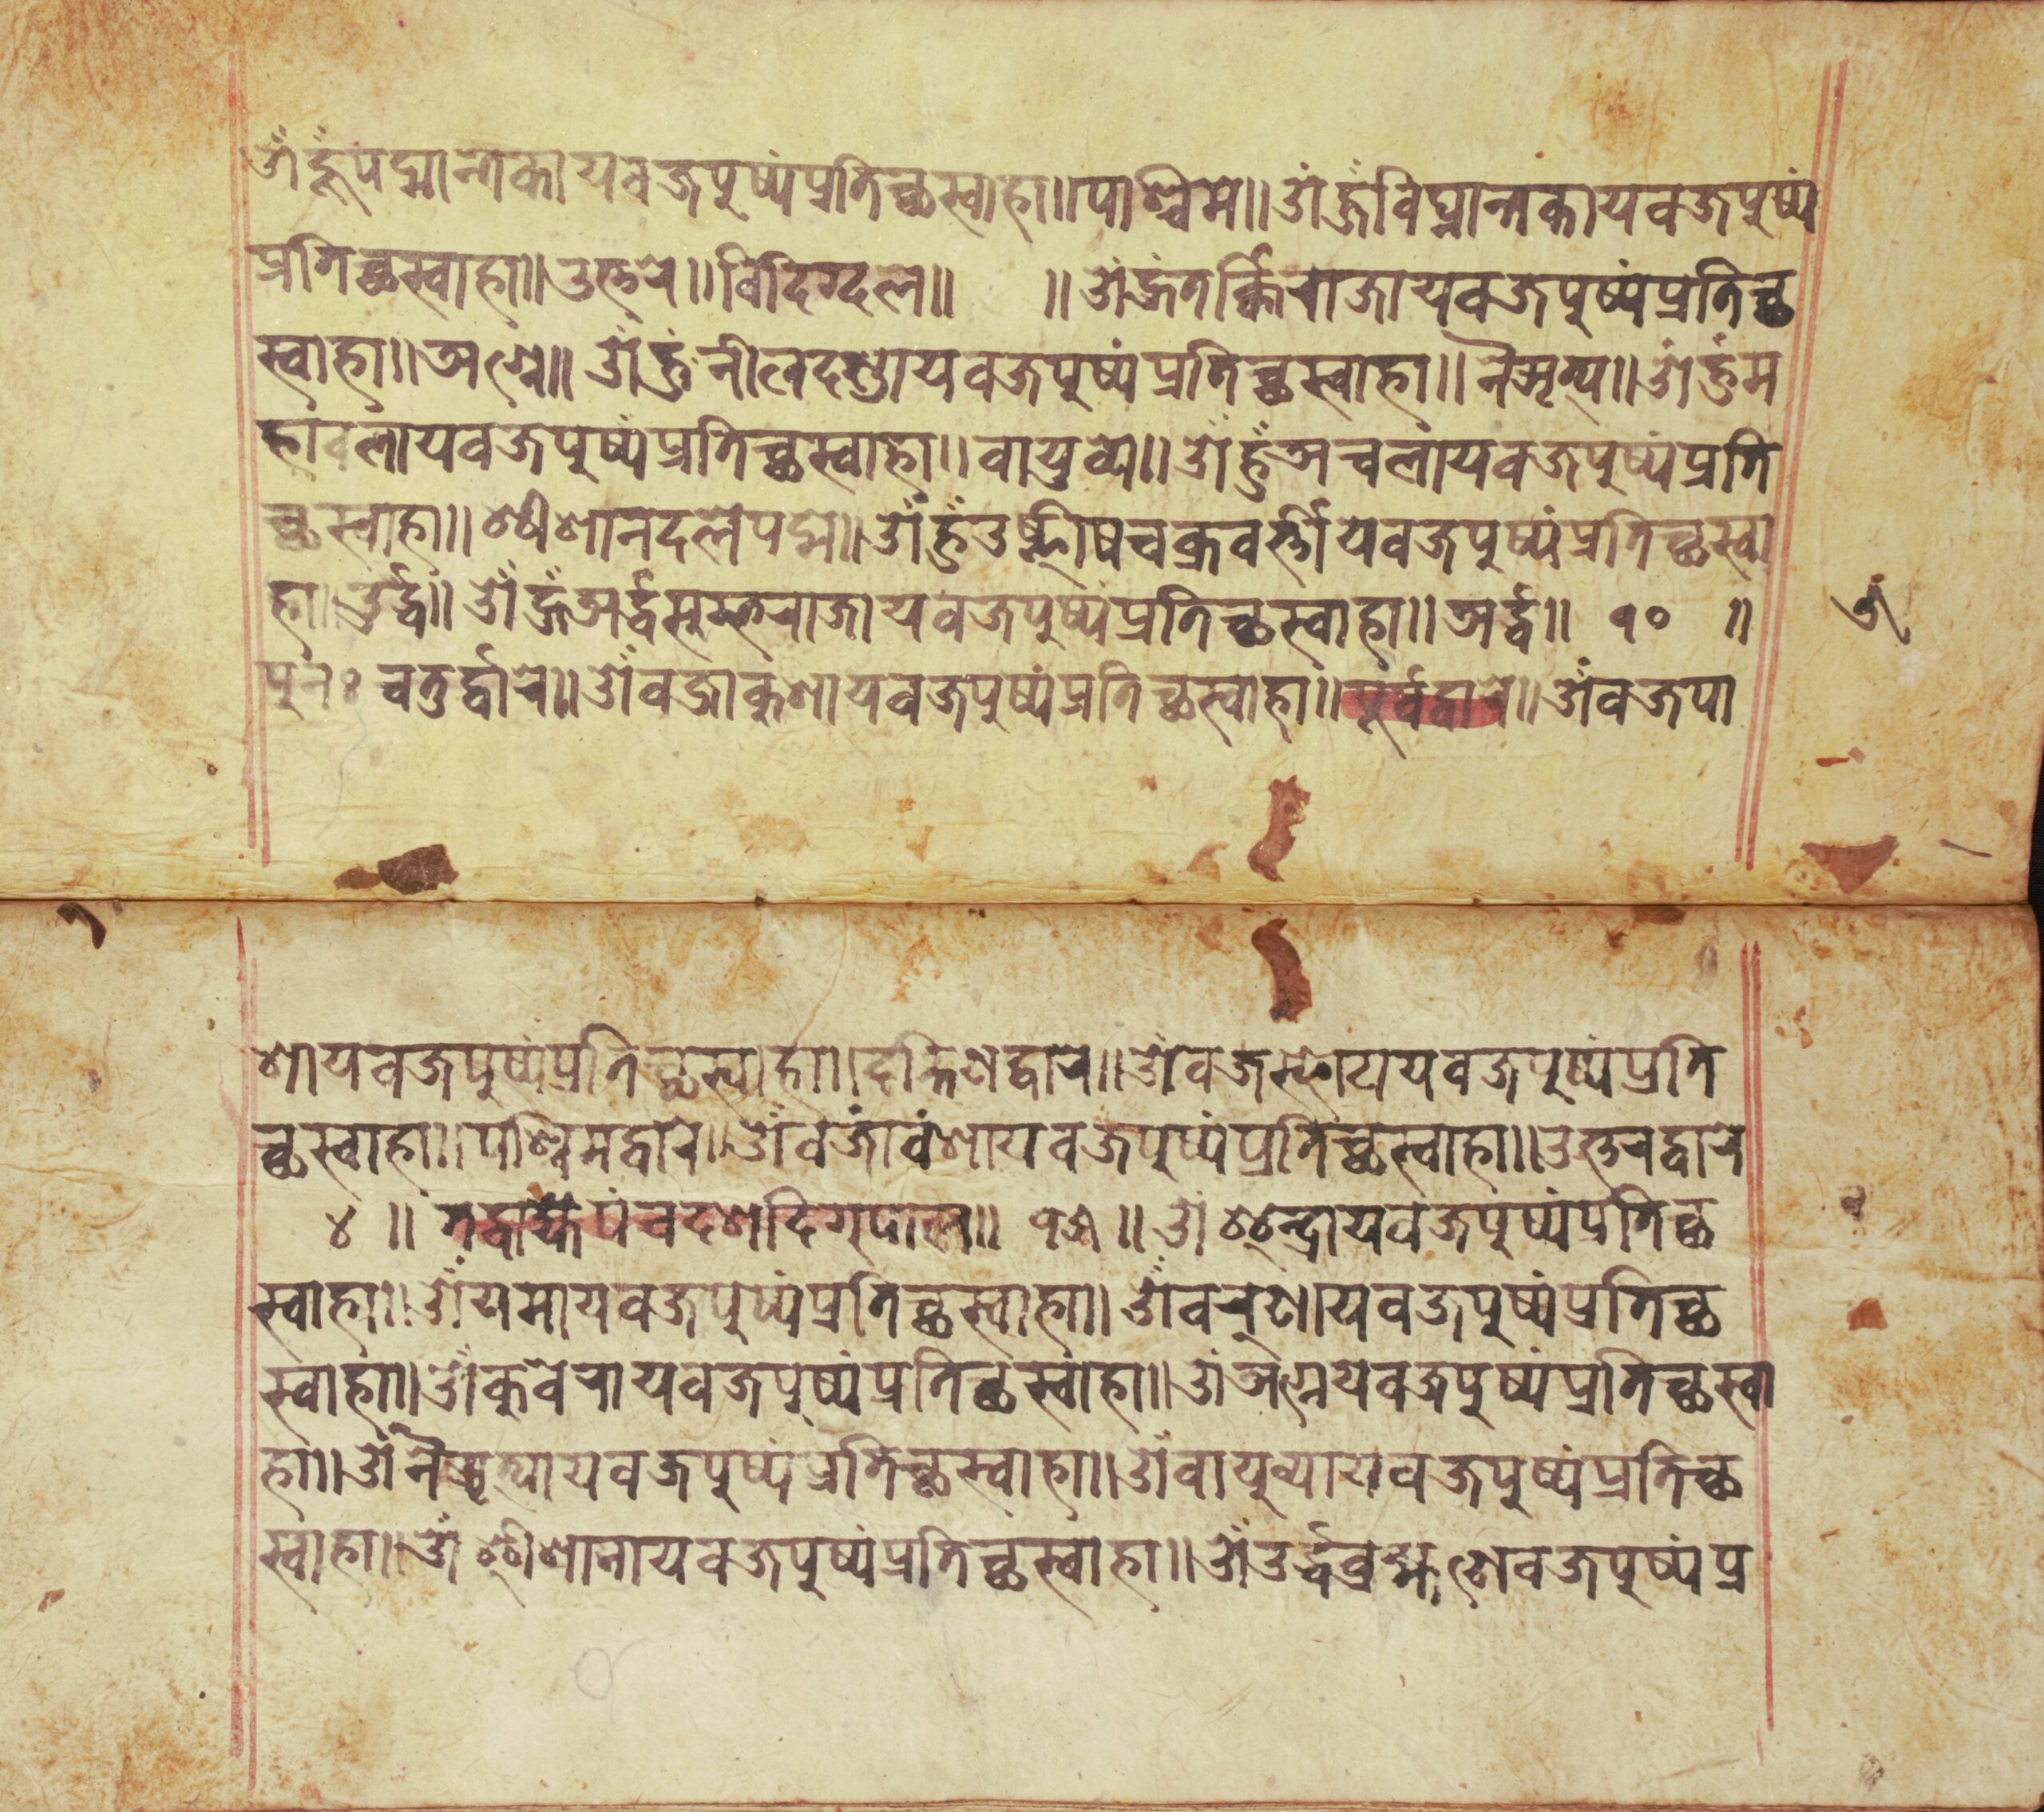 ॐ हूँपद्मान्तकायवज्रपुष्पंप्रतिच्छस्वाहा॥पाश्चिमे॥ॐ हूंविघ्नान्तकायवज्रपुष्पं
प्रतिच्छस्वाहा॥उत्तरे॥विदिग्दले॥ ॥ॐ हूंतर्क्किराजायवज्रपुष्पंप्रतिच्छ
स्वाहा॥अग्ने॥ॐ हुंनीलदण्डायवज्रपुष्पंप्रतिच्छस्वाहा॥नैऋत्य॥ॐ हुंम
हावलायवज्रपुष्पंप्रतिच्छस्वाहा॥वायुव्ये॥ॐ हुँअचलायवज्रपुष्पंप्रति
च्छस्वाहा॥ईशानदलेपद्मे॥ॐ हुंउष्णीषचक्रवर्त्तीयेवज्रपुष्पंप्रतिच्छस्वा
हा॥उर्द्ध॥ॐ हूंअर्द्धसुम्भराजायवज्रपुष्पंप्रतिच्छस्वाहा॥अर्द्ध॥ १० ॥
पुनः चतुर्द्वारे॥ॐ वज्राकुशायवज्रपुष्पंप्रतिच्छस्वाहा॥पूर्वद्वारे॥ॐ वज्रपा
ॐ
शायवज्रपुष्पंप्रतिच्छस्वाहा॥दक्षिणद्वारे॥ॐ वज्रस्फोटायवज्रपुष्पंप्रति
च्छस्वाहा॥पश्चिमद्वारे॥ॐ वज्रांवंशायवज्रपुष्पंप्रतिच्छस्वाहा॥उत्तरद्वारे
४ ॥ तद्वाह्येपंचदशदिग्पाल॥ १५ ॥ॐ इन्द्रायवज्रपुष्पंप्रतिच्छ
स्वाहा॥ॐ यमायवज्रपुष्पंप्रतिच्छस्वाहा॥ॐ वरुणायवज्रपुष्पंप्रतिच्छ
स्वाहा॥ॐ कुवेरायवज्रपुष्पंप्रतिच्छस्वाहा॥ॐ अग्नयेवज्रपुष्पंप्रतिच्छस्वा
हा॥ॐ नैऋत्यायवज्रपुष्पंप्रतिच्छस्वाहा॥ॐ वायुव्यायवज्रपुष्पंप्रतिच्छ
स्वाहा॥ॐ ईशानायवज्रपुष्पंप्रतिच्छस्वाहा॥ॐ उर्द्धब्रह्मणेवज्रपुष्पंप्र